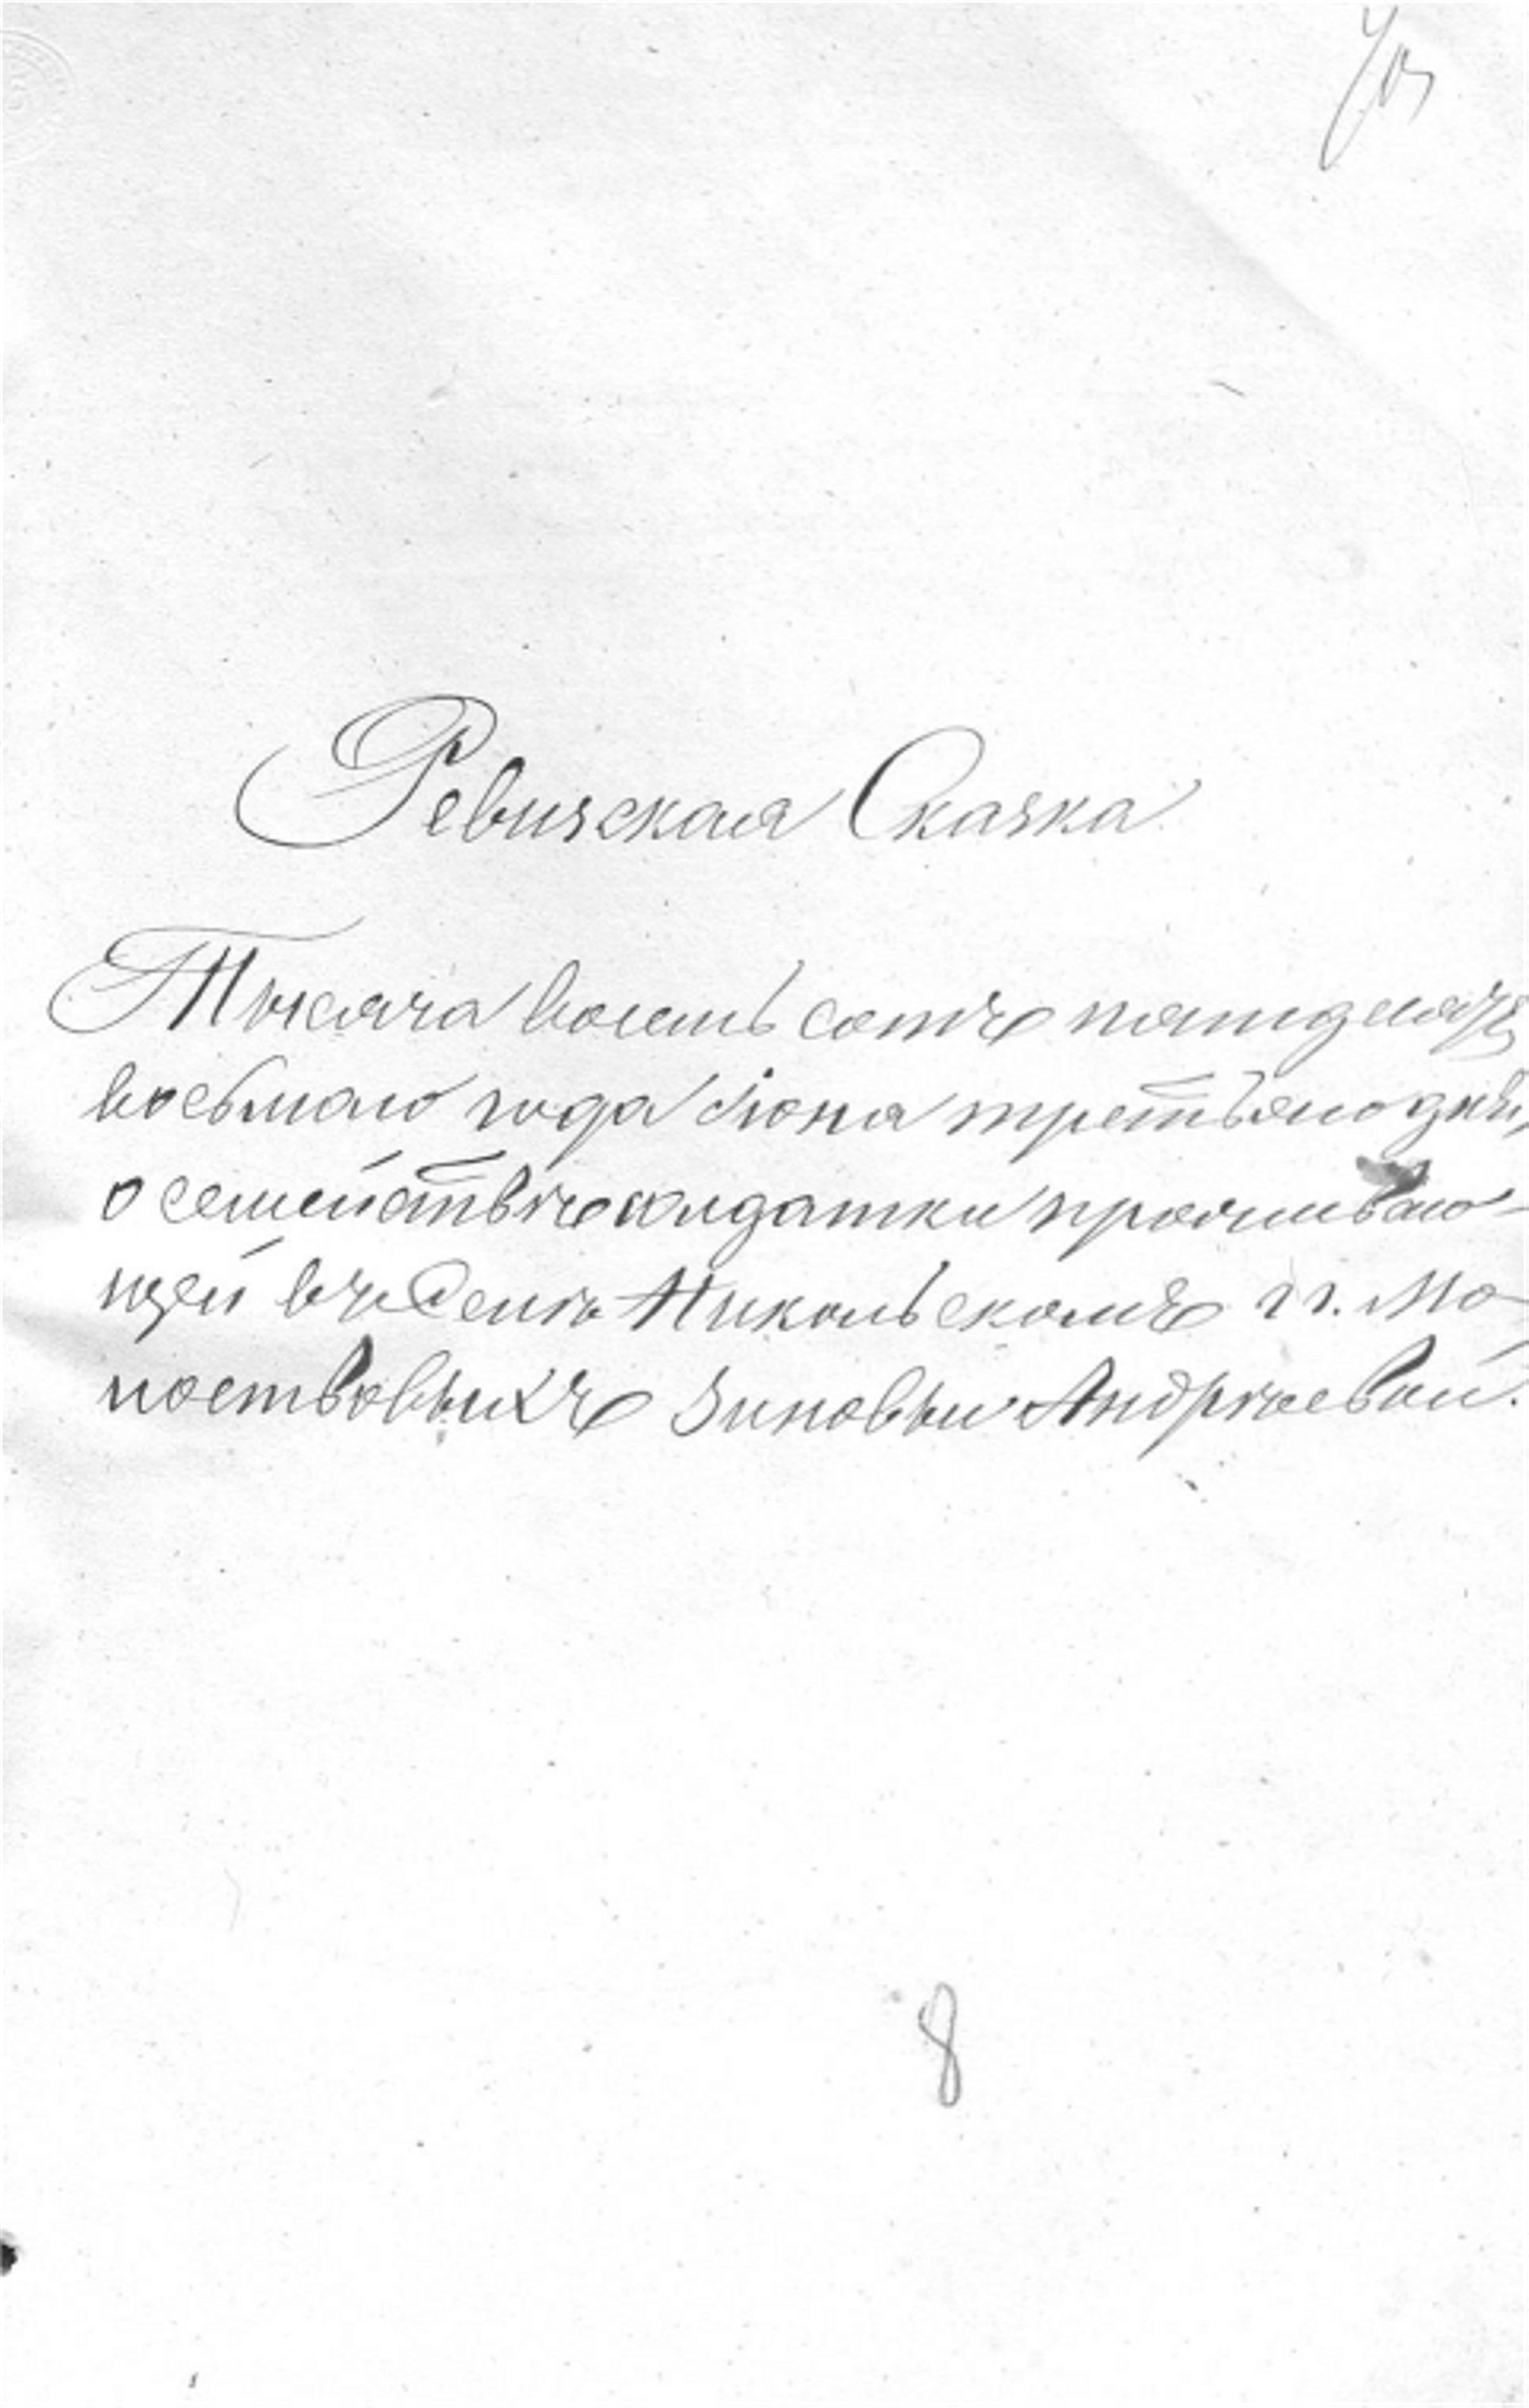 Ревизская Сказка
Тысяча восемь сотъ пятидесятъ
восьмаго года Іюня третьяго дня,
о семействѣ солдатки проживаю-
щей въ Селѣ Никольскомъ гг. Мо-
Зиновьи Андрѣевой.
8